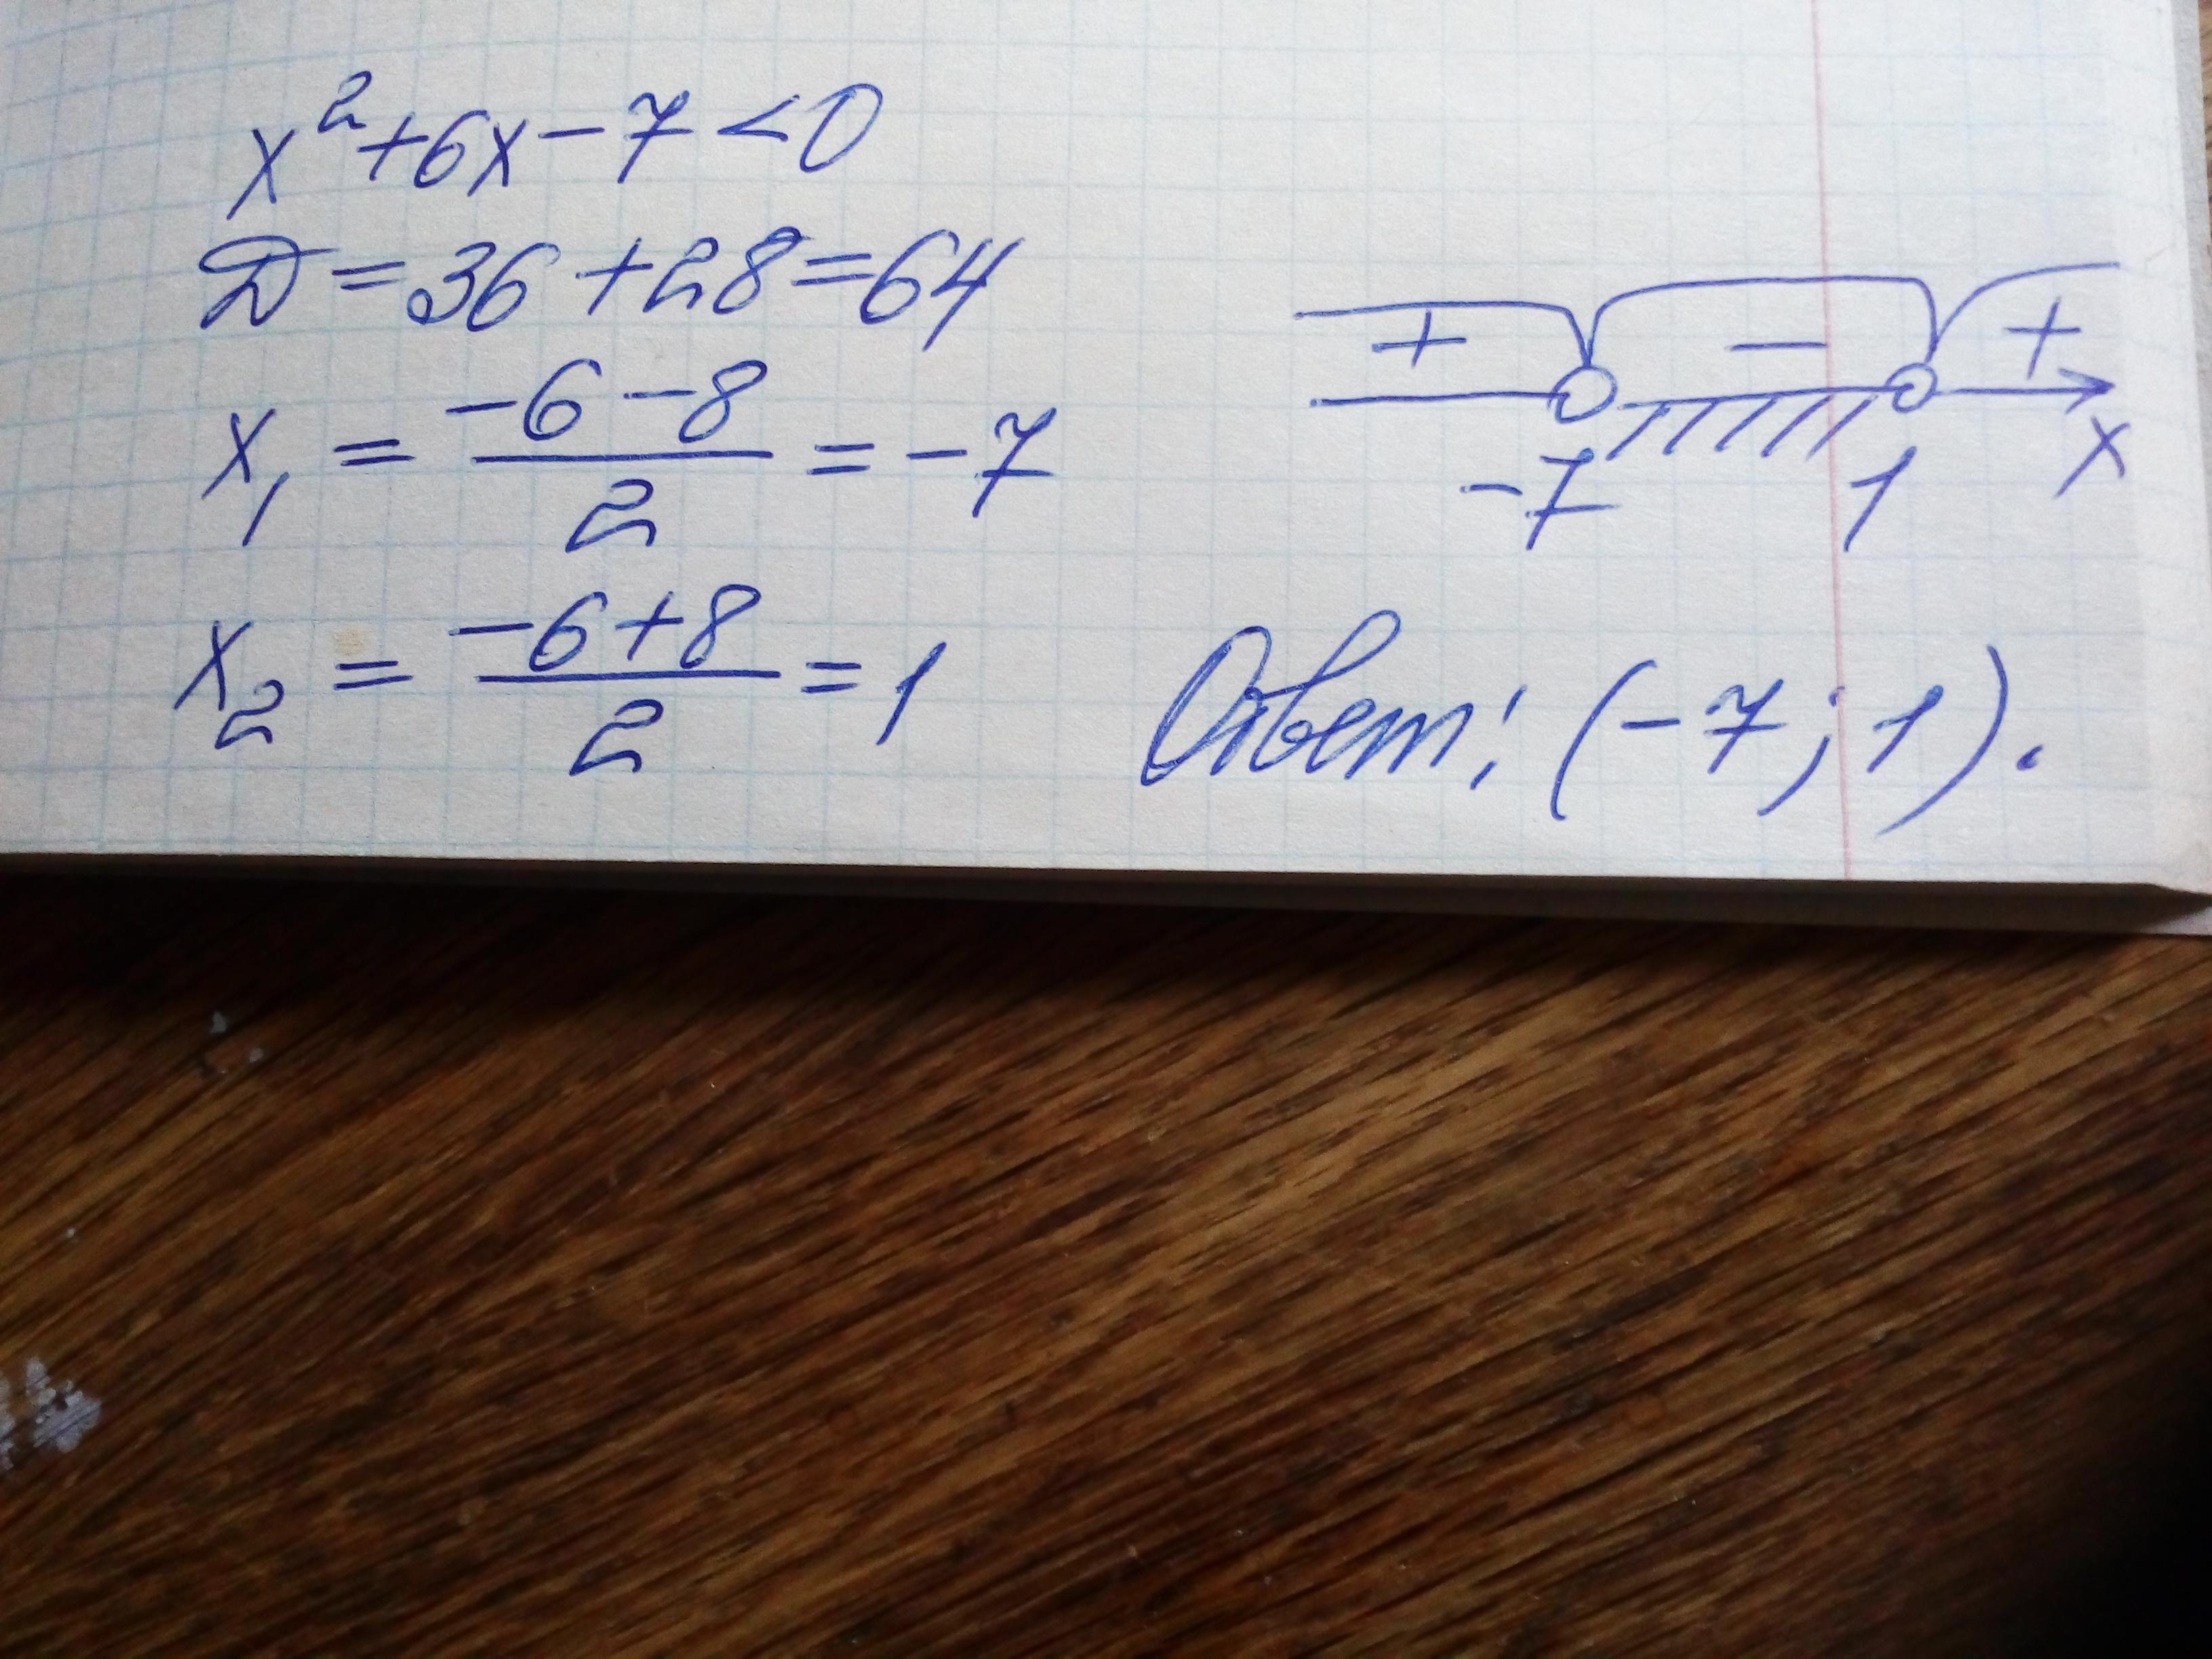 x² + 6x - 7 < 0
D = 36 + 28 = 64
x₁ = (-6 - 8)/2 = -7
x₂ = (-6 + 8)/2 = 1
+ - +
-7 1 x
Ответ: (-7; 1).